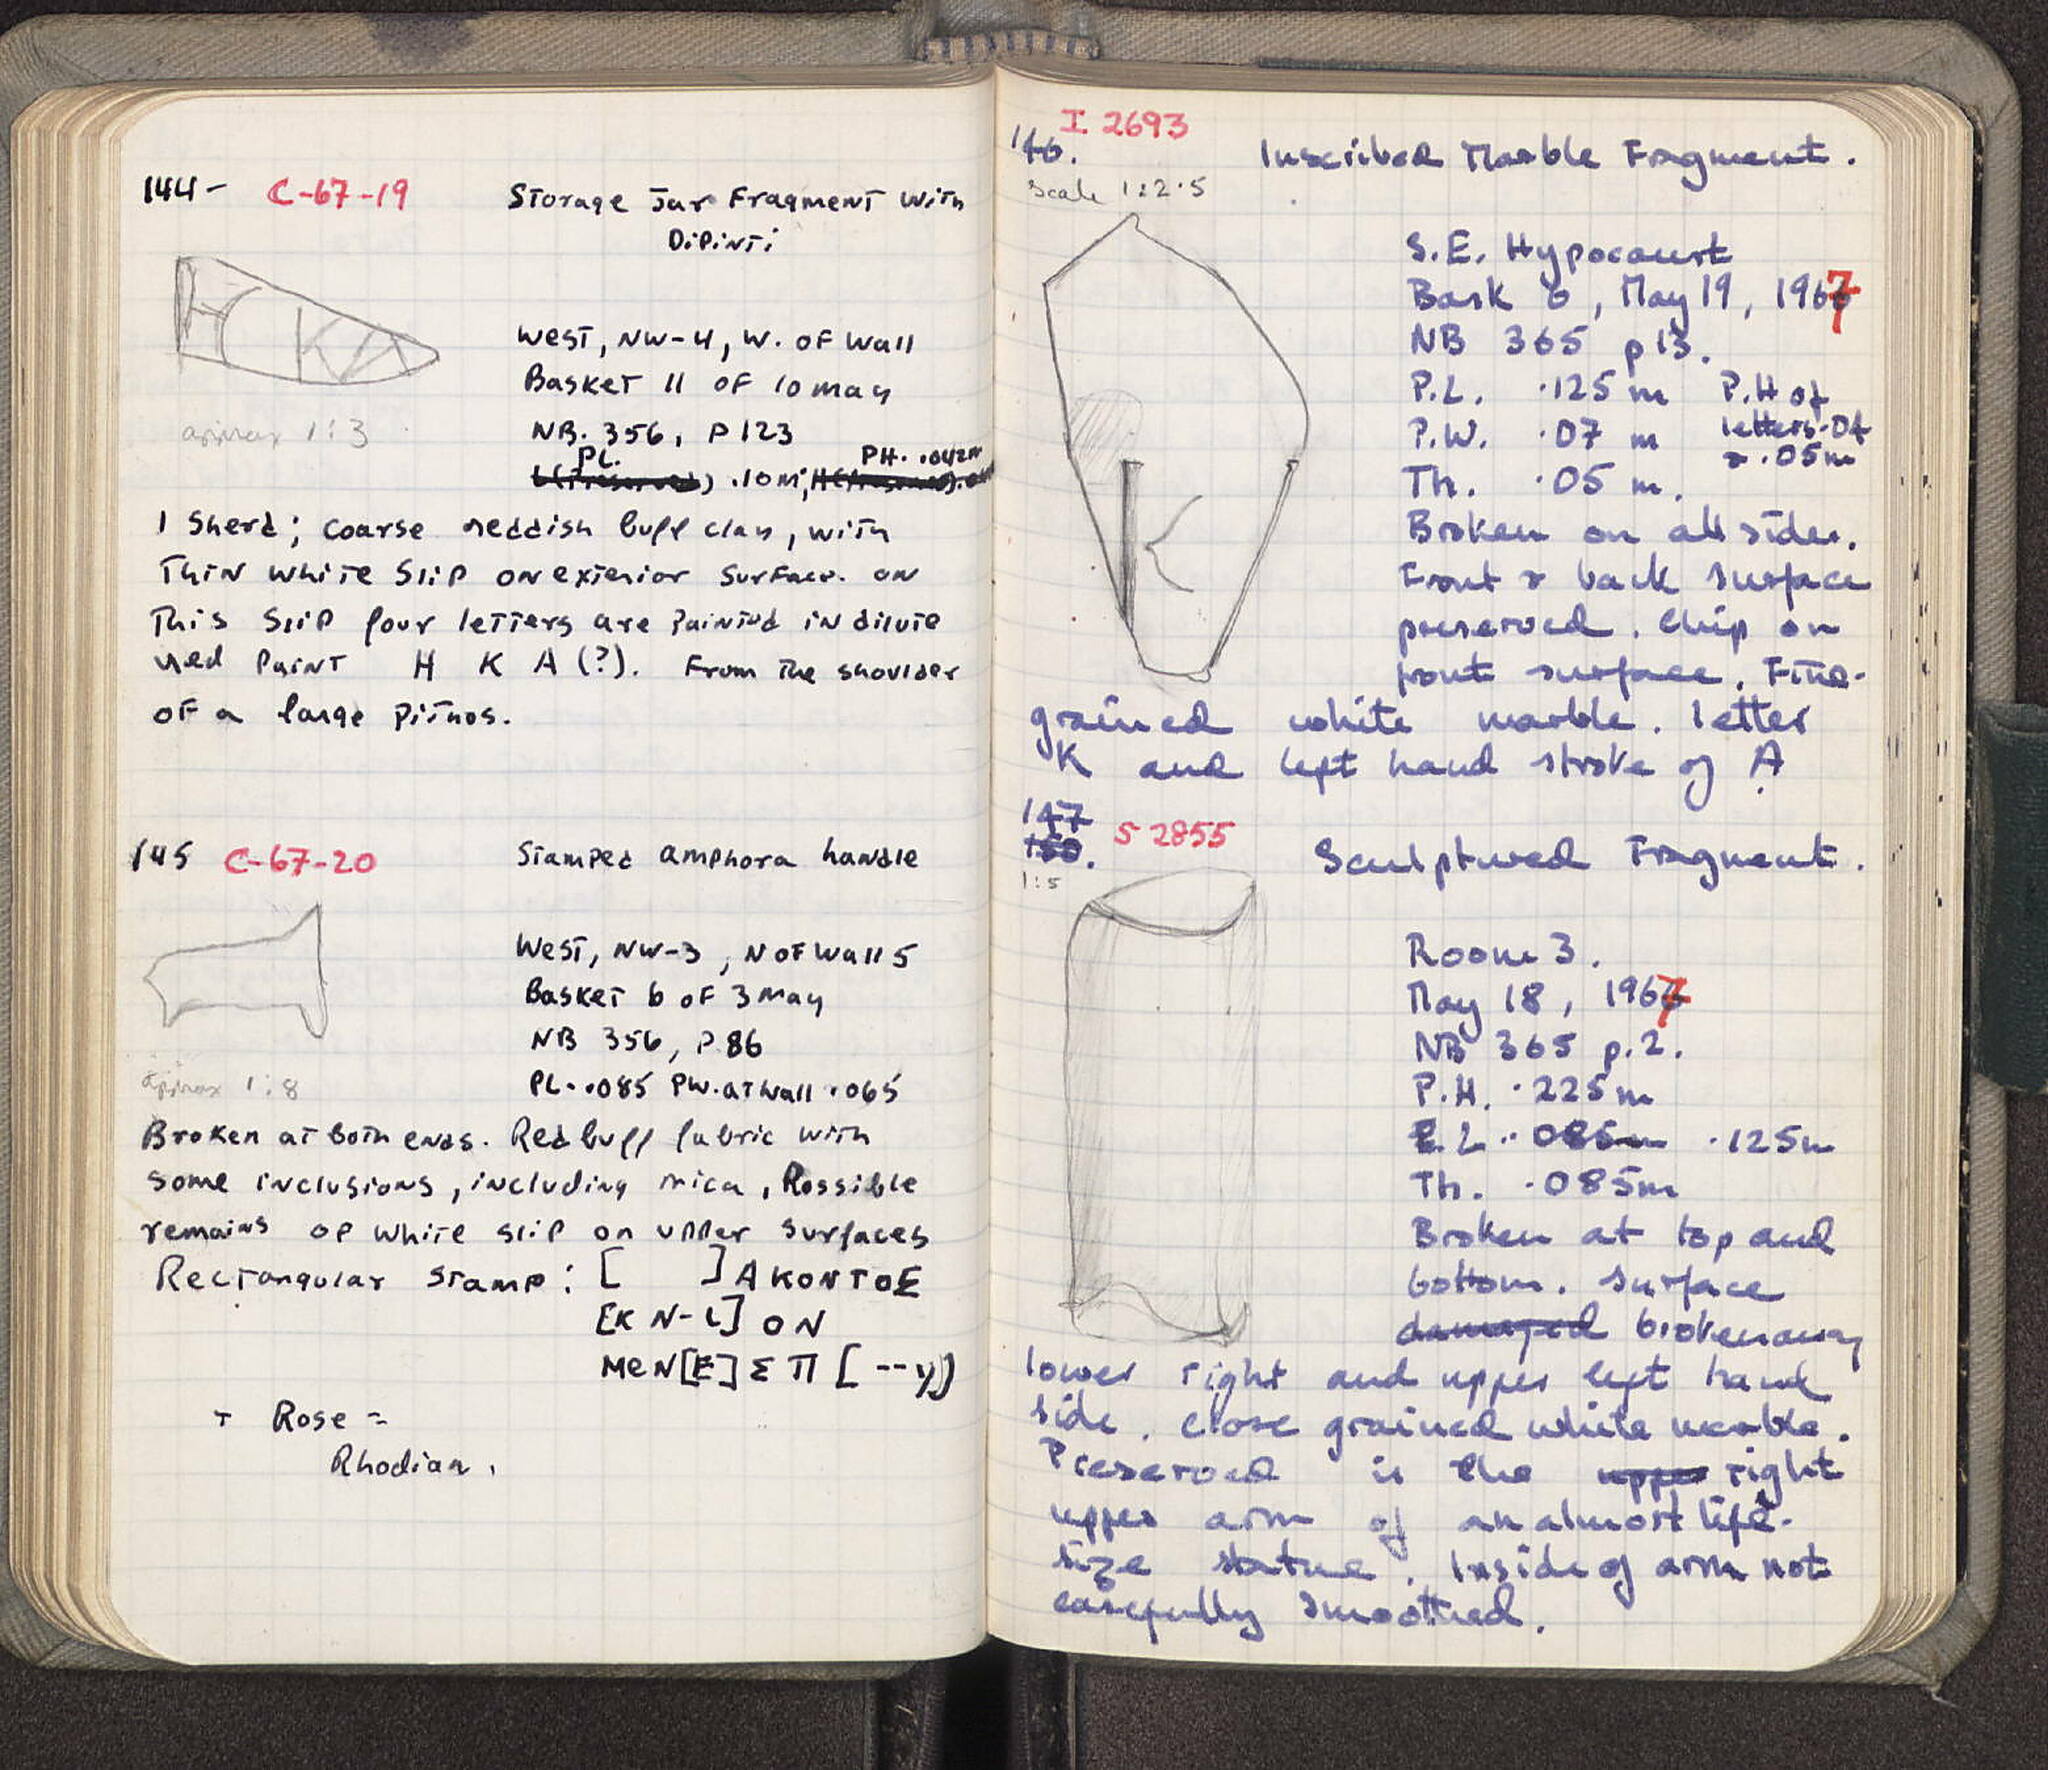 144- C-67-19 Storage Jar Fragment with
Dipinti
HC KA
West, NW-4, W. of Wall
Basket 11 of 10 may
approx 1:3
NB. 356, P 123
PL. PH. .042m
L(Preserved) .10m, H(Preserved)
1 sherd; coarse reddish buff clay, with
Thin white slip on exterior surface. on
This slip four letters are painted in dilute
red paint H K A (?). From the shoulder
of a large pithos.
145 C-67-20 Stamped amphora handle
West, NW-3, N of Wall 5
Basket 6 of 3 may
NB 356, P. 86
approx 1:8
PL. .085 PW. at wall .065
Broken at both ends. Red buff fabric with
some inclusions, including mica, Possible
remains of white slip on upper surfaces
Rectangular stamp: [ ]AKONTOE
[KN-L]ON
MEN[E]ΣΠ[--y]
+ Rose =
Rhodian.
I 2693
146. Inscribed Marble Fragment.
Scale 1:2.5
S.E. Hypocaust
Bask 6, May 19, 1967
NB 365 p 13.
P.L. .125 m P.H of
P.W. .07 m letters .04
& .05m
Th. .05 m.
K
Broken on all sides.
Front & back surface
preserved. Chip on
front surface. Fine-
grained white marble. letter
K and left hand stroke of A
147
150. S 2855 Sculptured Fragment.
1:5
Room 3.
May 18, 1967
NB 365 p. 2.
P.H. .225m
P.L. .085m .125m
Th. .085m
Broken at top and
bottom. Surface
damaged broken away
lower right and upper left hand
side. Close grained white marble.
Preserved is the upper right
upper arm of an almost life-
size statue. Inside of arm not
carefully smoothed.